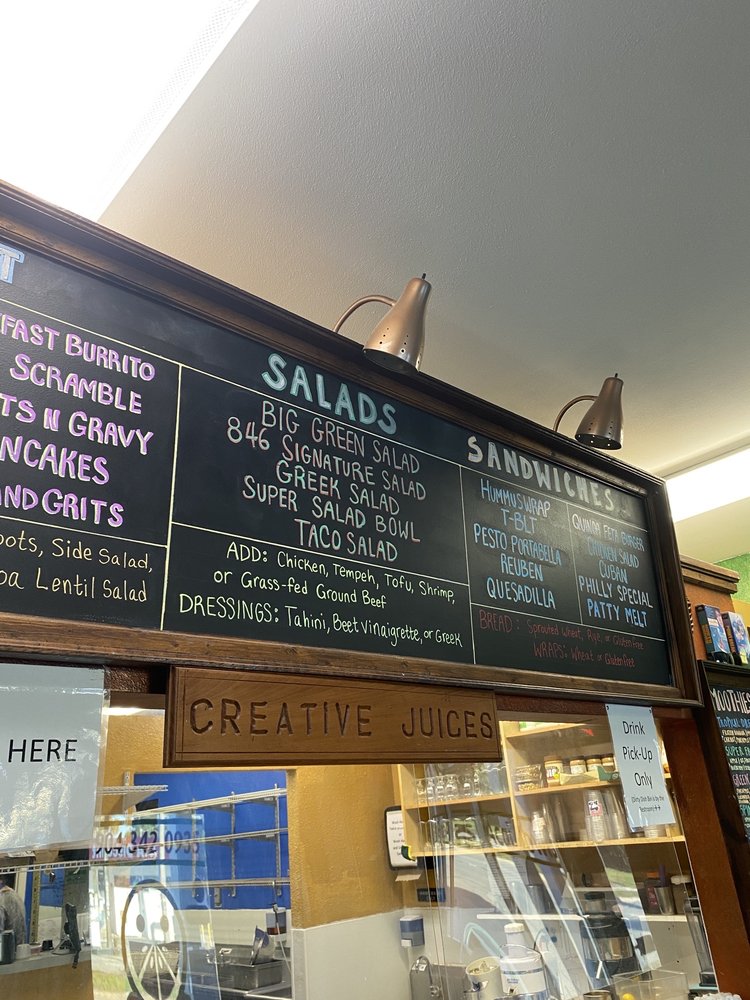 T
FAST BURRITO
SCRAMBLE
TS N GRAVY
ANCAKES
AND GRITS
oots, Side Salad,
oa Lentil Salad
SALADS
BIG GREEN SALAD
846 SIGNATURE SALAD
GREEK SALAD
SUPER SALAD BOWL
TACO SALAD
ADD: Chicken, Tempeh, Tofu, Shrimp,
or Grass-fed Ground Beef
DRESSINGS: Tahini, Beet vinaigrette, or Greek
SANDWICHES
HUMMUS WRAP
T-BLT
PESTO PORTABELLA
REUBEN
QUESADILLA
QUINOA FETA BURGER
CHICKEN SALAD
CUBAN
PHILLY SPECIAL
PATTY MELT
BREAD: Sprouted Wheat, Rye, or Gluten free
WRAPS: Wheat or Gluten free
CREATIVE JUICES
HERE
Drink
Pick-Up
Only
904.342.0935
MOOTHIES